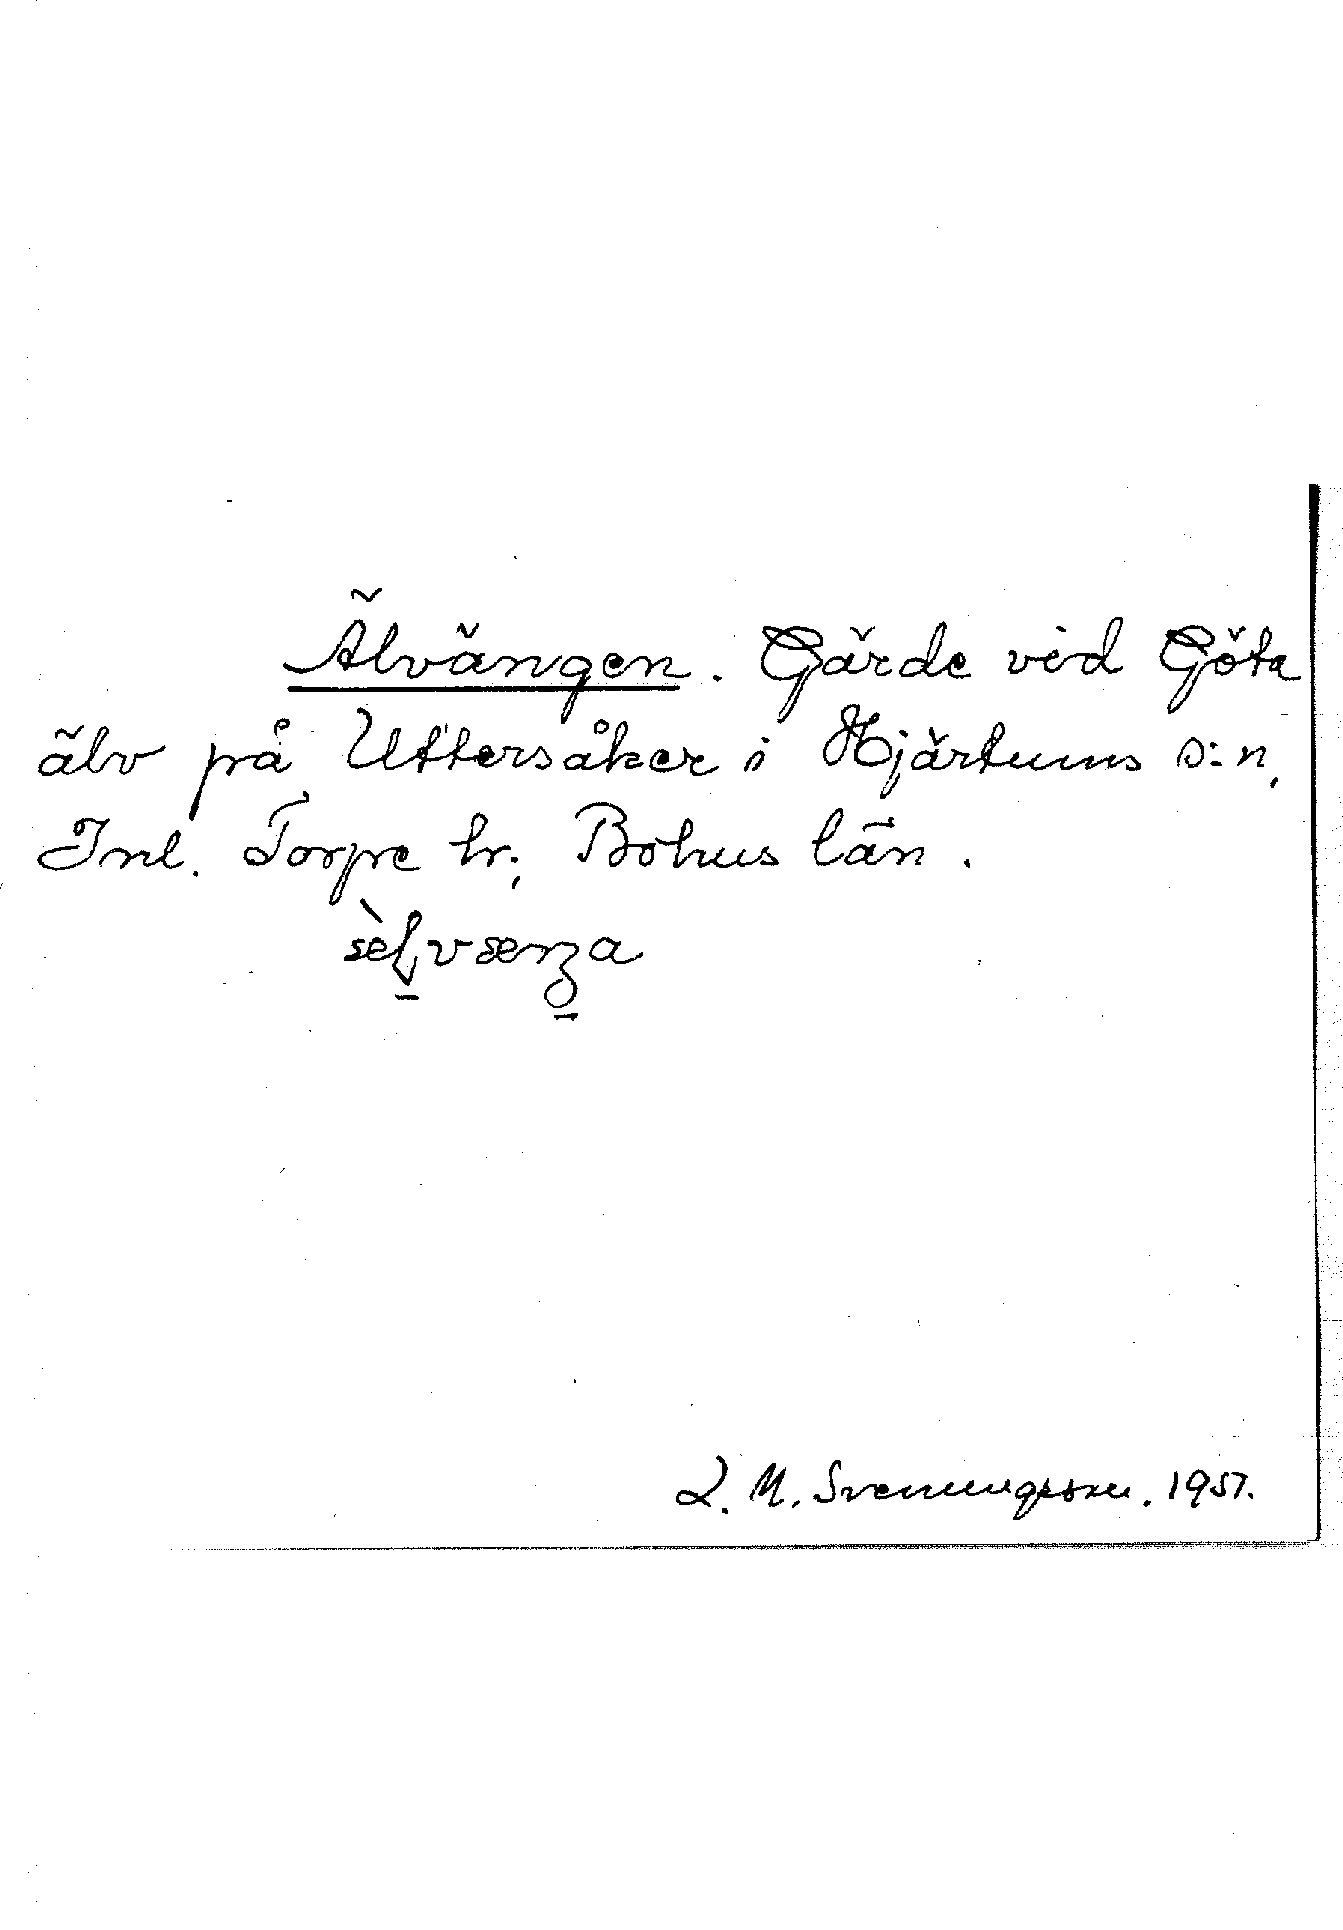 Älvängen. Gärde vid Göta
älv på Uttersåker i Hjärtums s:n,
Inl. Torpe hr, Bohus län.
L. M. Svenungsson. 1957.